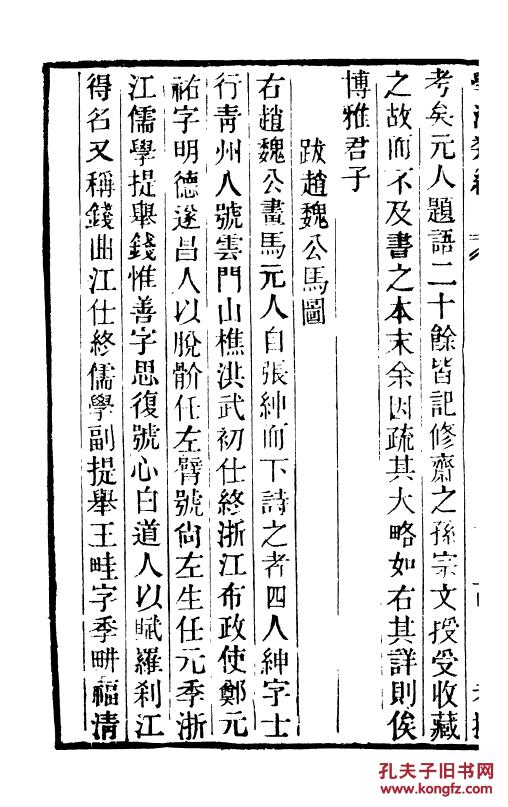 考矣元人題語二十餘皆記修齋之孫宗文授受收藏
之故而不及書之本末余因疏其大略如右其詳則俟
博雅君子
跋趙魏公馬圖
右趙魏公畫馬元人自張紳而下詩之者四人紳字士
行青州人號雲門山樵洪武初仕終浙江布政使鄭元
祐字明德遂昌人以脫骱任左臂號尙左生任元季浙
江儒學提舉錢惟善字思復號心白道人以賦羅刹江
得名又稱錢曲江仕終儒學副提舉王畦字季畊福清
孔夫子旧书网
www.kongfz.com